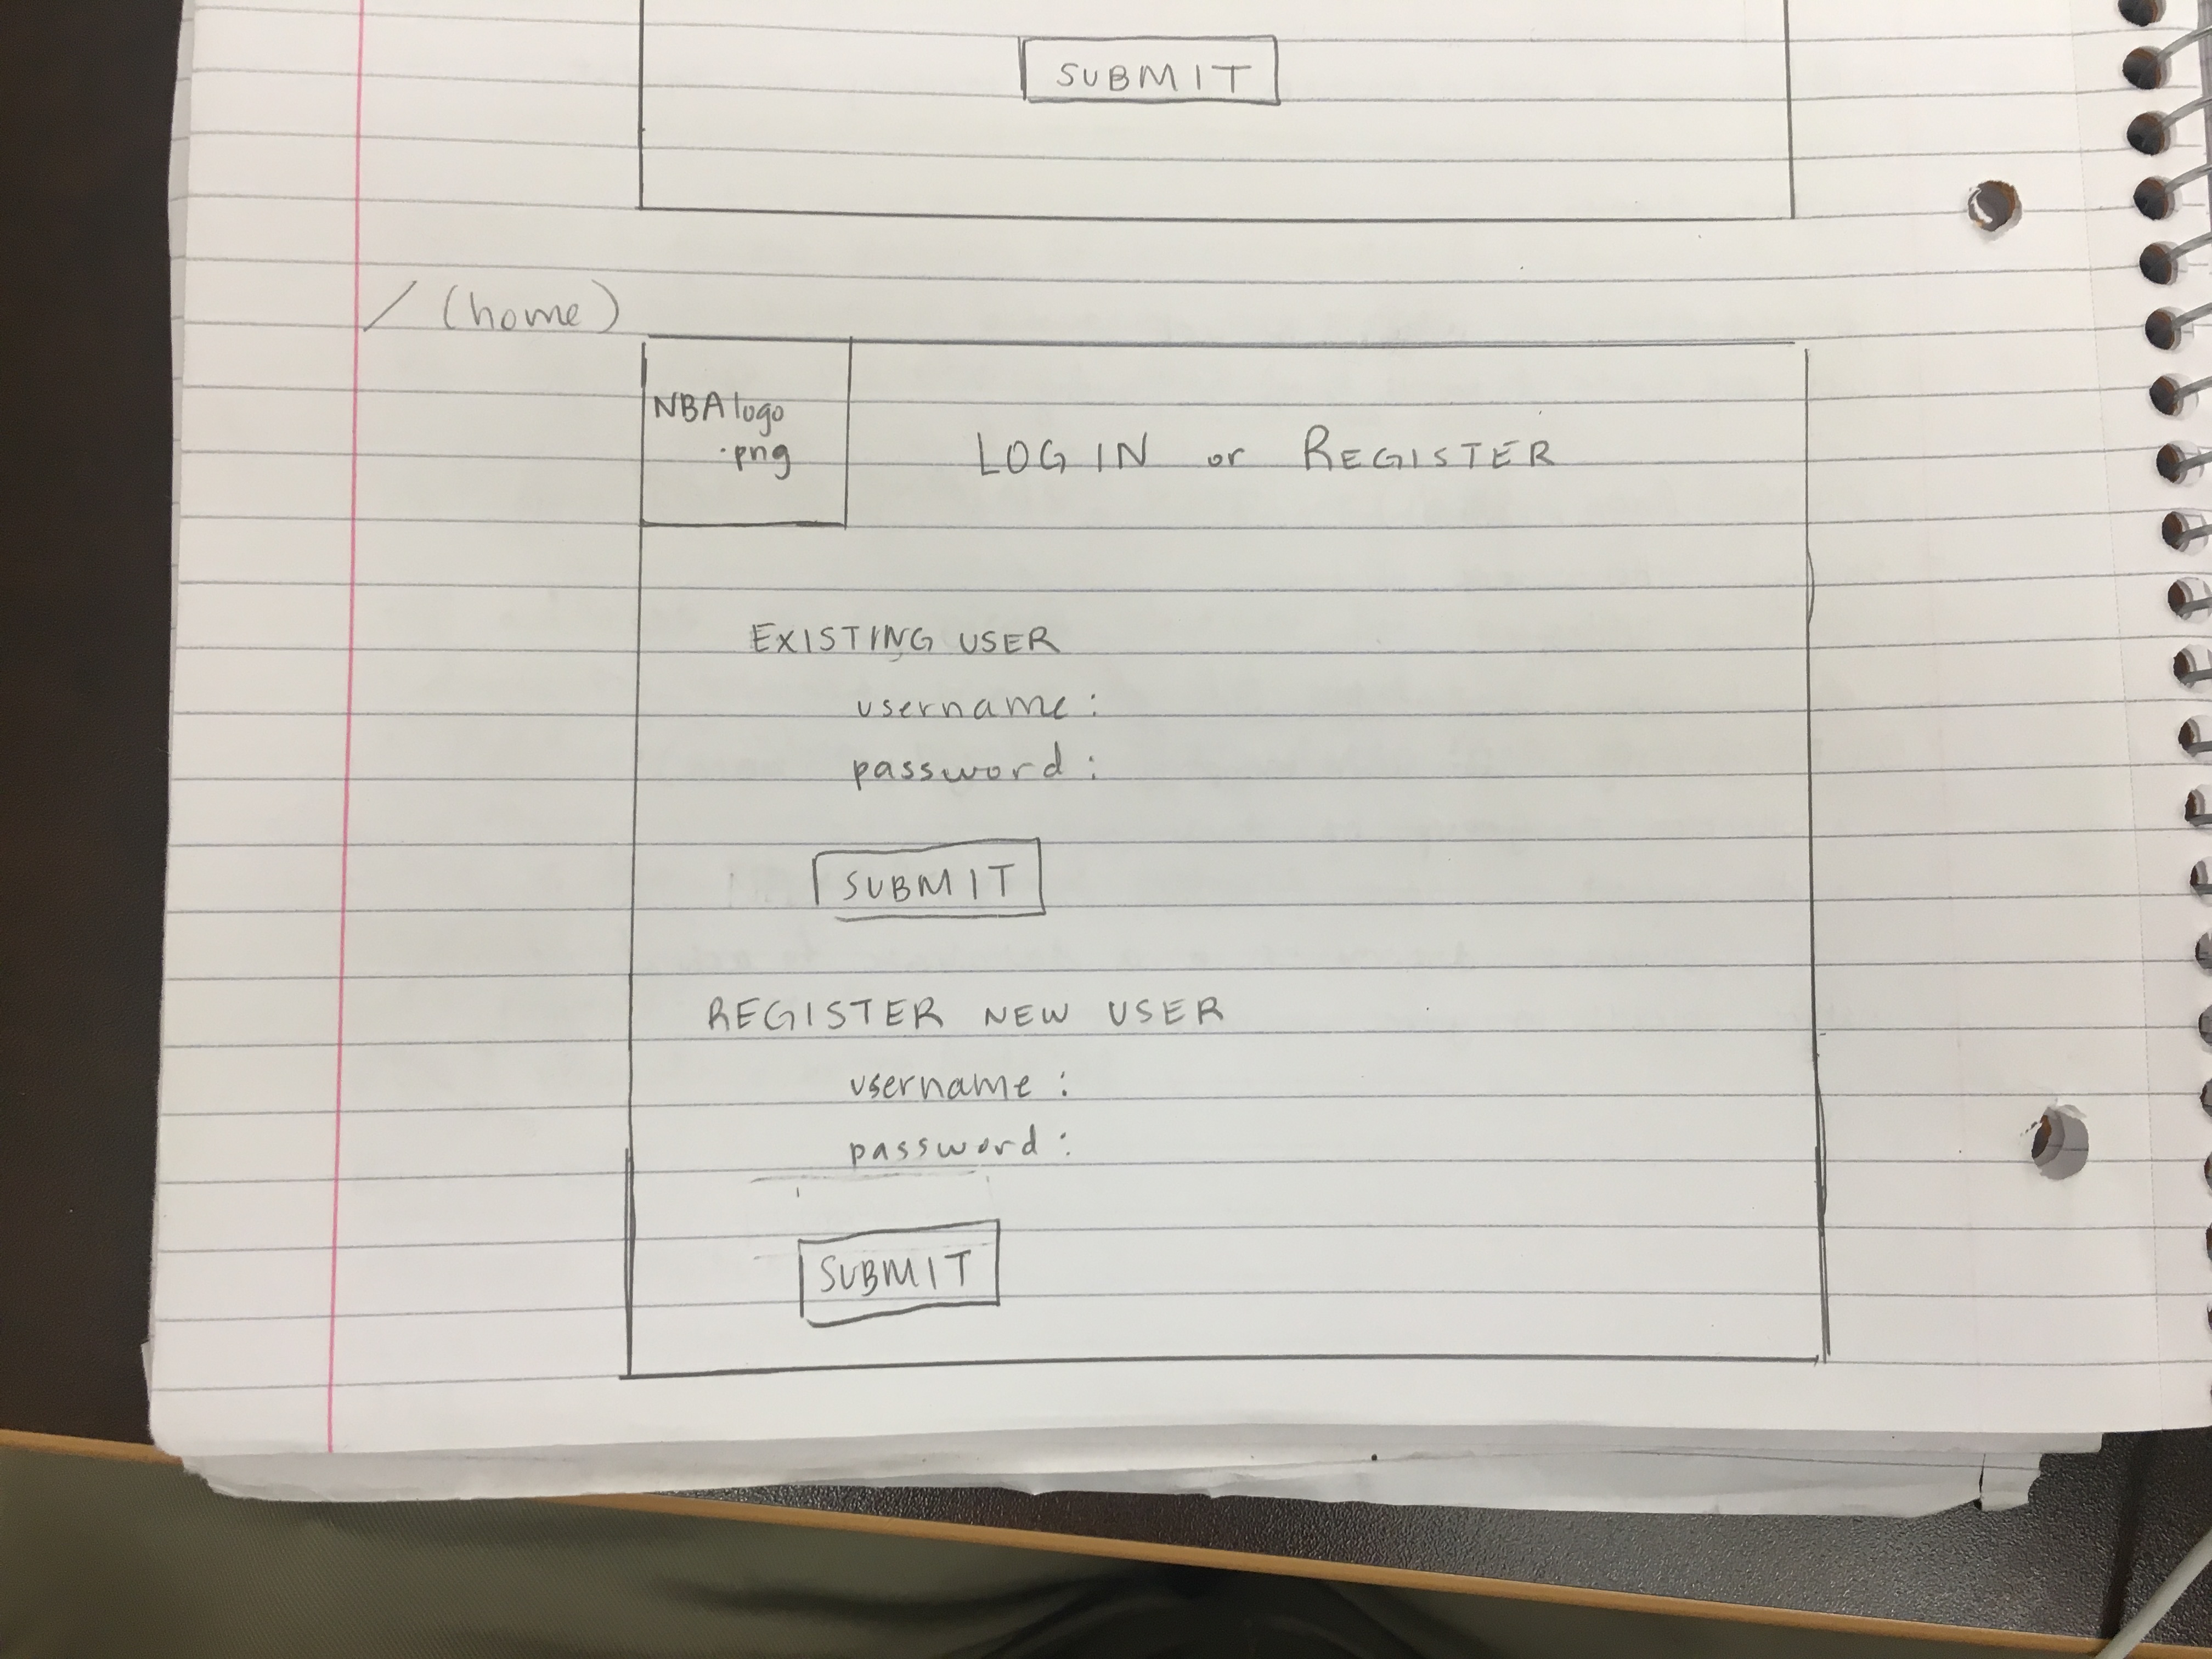 SUBMIT
/ (home)
NBA logo
.png
LOG IN or REGISTER
EXISTING USER
username :
password :
SUBMIT
REGISTER NEW USER
username :
password :
SUBMIT